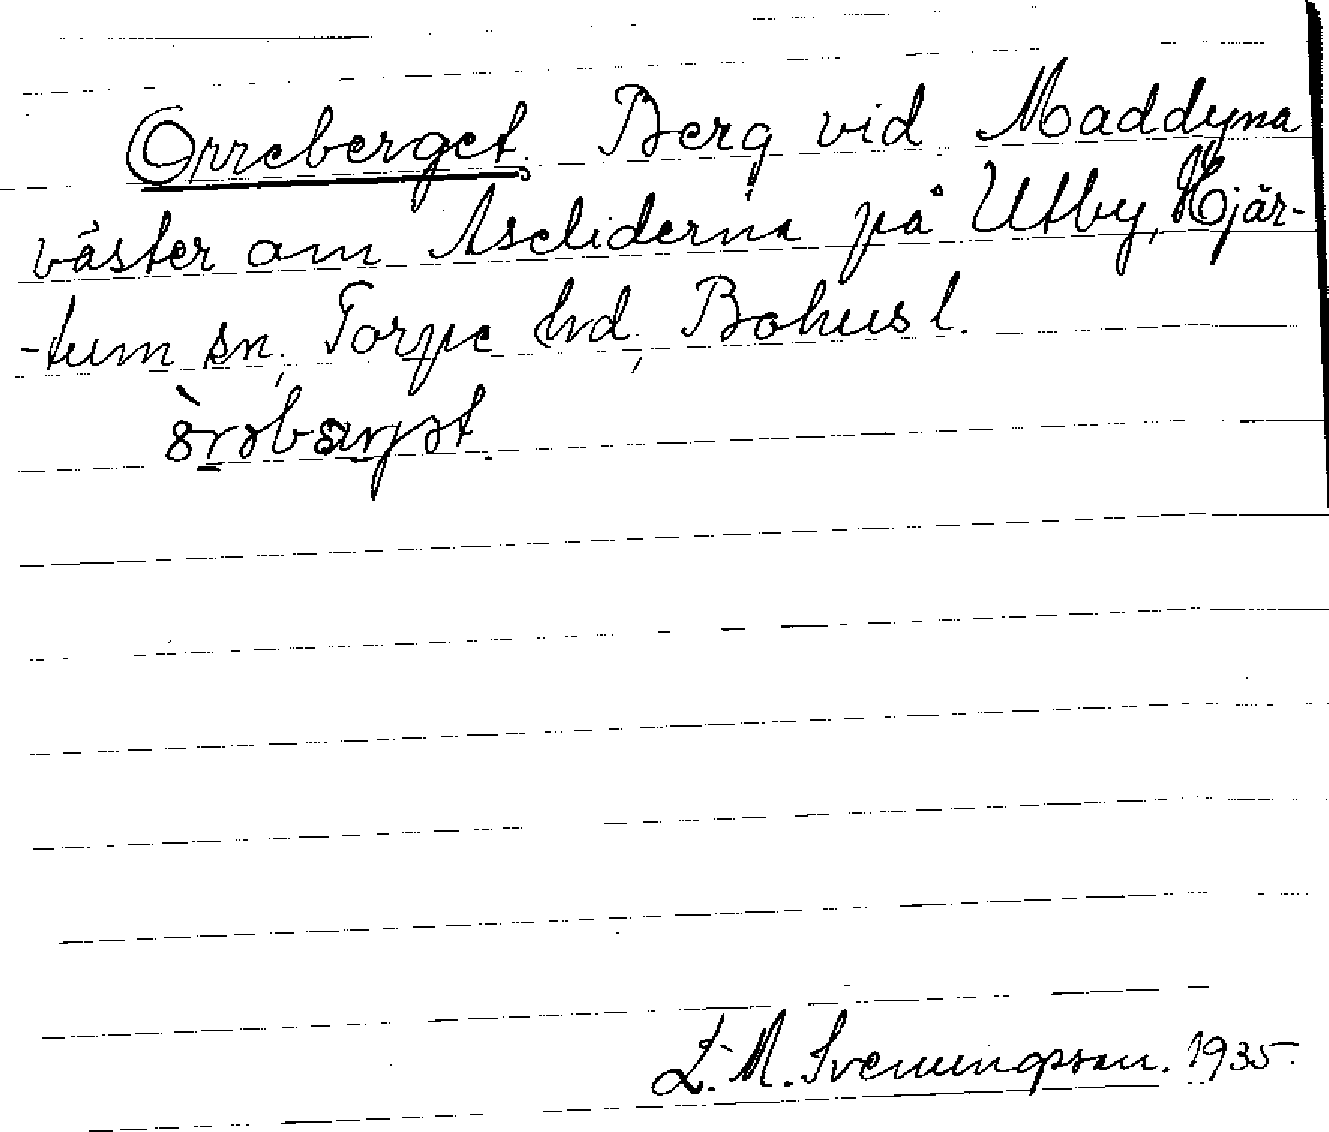 Orreberget. Berg vid Maddyna
väster om Aseliderna på Utby, Hjär-
-tum sn, Torpe hd, Bohusl.
L. M. Svenungsson. 1935.